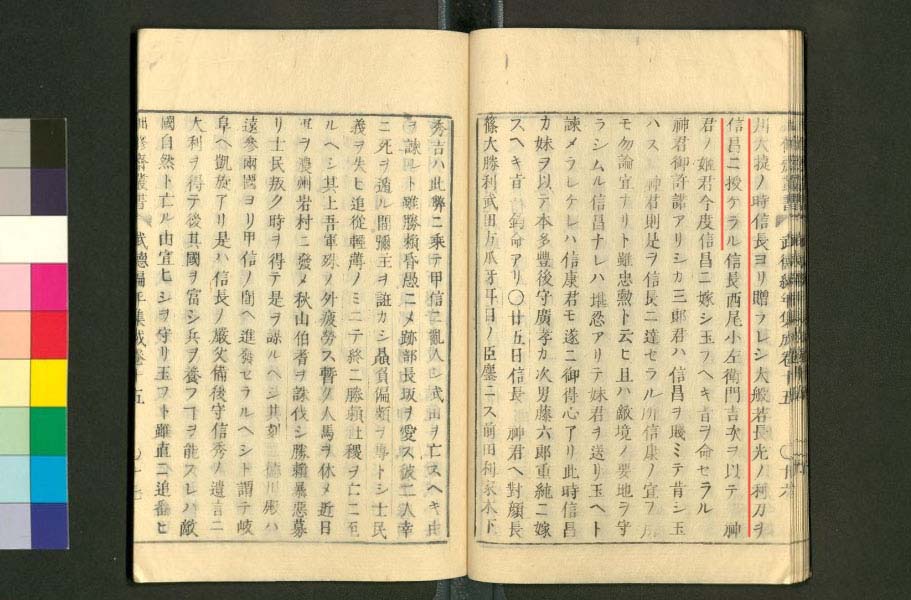 州大捷ノ時信長ヨリ贈ラレシ大般若長光ノ利刀ヲ
信昌ニ授ケラル信長西尾小左衛門吉次ヲ以テ　神
君ノ姫君今度信昌ニ嫁シ玉フヘキ旨ヲ命セラル
神君御許諾アリシカ三郎君ハ信昌ヲ賤ミテ肯シ玉
ハス　神君則是ヲ信長ニ達セラル所信康ノ宜フ所
モ勿論宜ナリト雖忠勲ト云ヒ且ハ敵境ノ要地ヲ守
ラシムル信昌ナレハ堪忍アリテ妹君ヲ送リ玉ヘト
諫メラレケレハ信康君モ遂ニ御得心アリ此時信昌
カ妹ヲ以テ本多豊後守廣孝カ次男藤六郎重純ニ嫁
スヘキ旨　釣命アリ〇廿五日信長　神君ヘ對顔長
篠大勝利武田方爪牙耳目ノ臣鏖ニス前田利家木下
秀吉ハ此弊ニ乗テ甲信ニ亂入シ武田ヲ亡スヘキ由
ヲ諫ルト雖勝頼昏愚ニメ跡部長坂ヲ愛ス彼二人幸
ニ死ヲ遁ル間彌主ヲ誑カシ贔負偏頗ヲ專トシ士民
義ヲ失ヒ追從輕薄ノミニテ終ニ勝頼社稷ヲ亡ニ至
ルヘシ其上吾軍殊ノ外疲勞ス暫ク人馬ヲ休メ近日
軍ヲ濃州岩村ニ發メ秋山伯耆ヲ誅伐シ勝頼暴惡募
リ士民叛ク時ヲ得テ是ヲ謀ルヘシ其刻　徳川殿ハ
遠參兩國ヨリ甲信ノ間ヘ進發セラルヘシト謂テ岐
阜ヘ凱旋アリ是ハ信長ノ嚴父備後守信秀ノ遺言ニ
大利ヲ得テ後其國ヲ富シ兵ヲ養フヿヲ能スレハ敵
國自然ト亡ル由宣ヒシヲ守リ玉フト雖直ニ追番ヒ
武徳編年集成巻十五